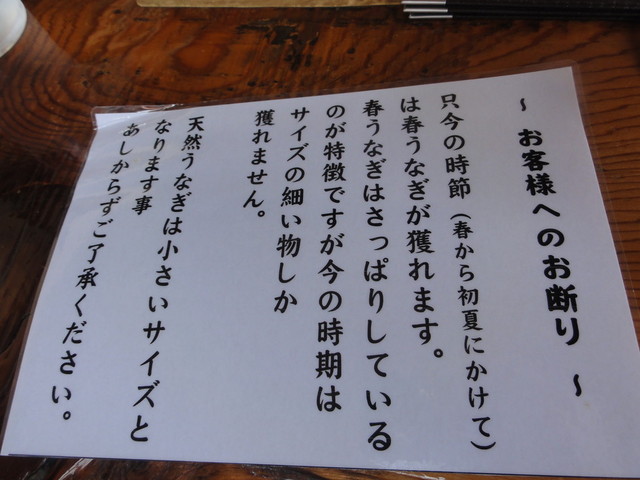 ～ お客様へのお断り ～
只今の時節（春から初夏にかけて）
は春うなぎが獲れます。
春うなぎはさっぱりしている
のが特徴ですが今の時期は
サイズの細い物しか
獲れません。
天然うなぎは小さいサイズと
なります事
あしからずご了承ください。